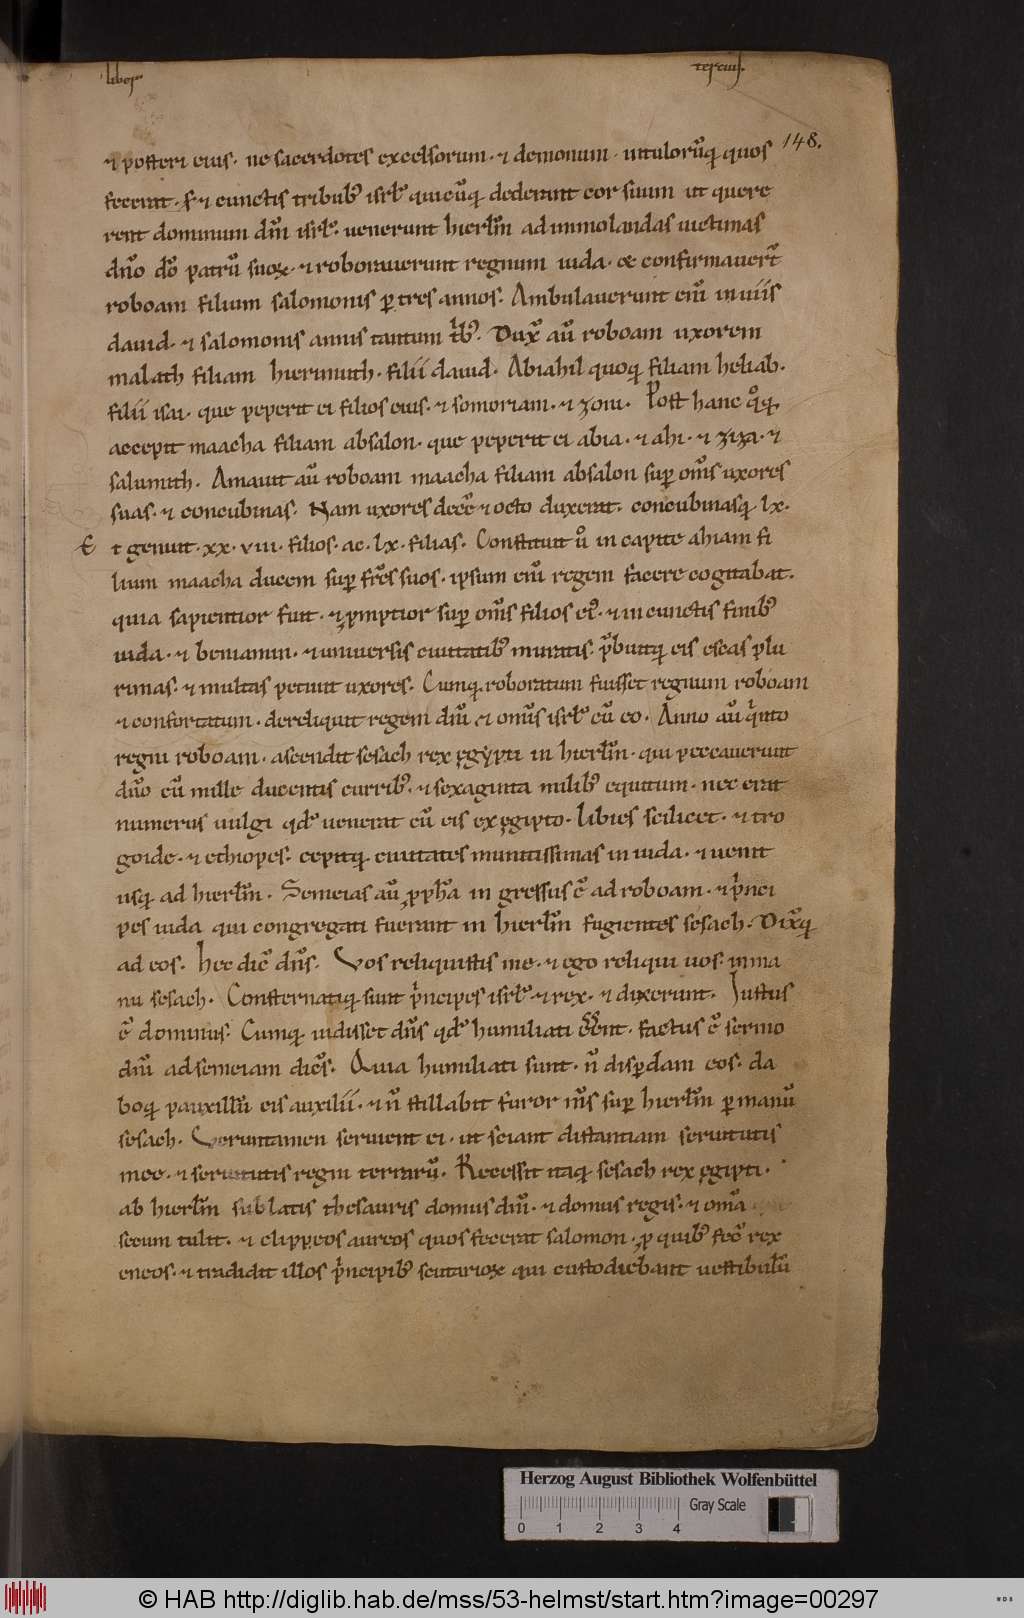 liber tercius.
148.
⁊ posteri eius. ne sacerdotes excelsorum. ⁊ demonum. uitulorūq quos
fecerat. S; ⁊ cunctis tribub; isrl̄ quicūq dederant cor suum ut quere
rent dominum dm̄ isrl̄. uenerunt hierlm̄ ad immolandas uictimas
dn̄o dō patrū suoꝝ. ⁊ roborauerunt regnum iuda. & confirmauert̄
roboam filium salomonis ꝑ tres annos. Ambulauerunt eni̅ in uiis
dauid. ⁊ salomonis annis tantum trib;. Dux̄ aū roboam uxorem
malath filiam hierimuth. filii dauid. Abiahil quoq filiam heliab.
filii isai. que peperit ei filios eius. ⁊ somoriam. ⁊ zoni. Post hanc qͦq
accepit maacha filiam absalon. que peperit ei abia. ⁊ ahi. ⁊ ziza. ⁊
salumith. Amauit aū roboam maacha filiam absalon suꝑ om̄s uxores
suas. ⁊ concubinas. Nam uxores decē ⁊ octo duxerat. concubinasq lx.
E t genuit. xx. viii. filios. ac. lx. filias. Constituit uͦ in capite ahiam fi
lium maacha ducem suꝑ fr̄es suos. ipsum eni̅ regem facere cogitabat.
quia sapientior fuit. ⁊ ꝓmptior suꝑ om̄s filios ei;. ⁊ in cunctis finib;
iuda. ⁊ beniamin. ⁊ uniuersis ciuitatib; muratis. p̄buitq eis escas plu
rimas. ⁊ multas petiuit uxores. Cumq roboratum fuisset regnum roboam
⁊ confortatum. dereliquit regem dm̄ ⁊ omnis isrl̄ cū eo. Anno aū qͥnto
regni roboam. ascendit sesach rex ęgypti in hierlm̄. qui peccauerunt
dn̄o cū mille ducentis currib;. ⁊ sexaginta milib; equitum. nec erat
numerus uulgi qd̄ uenerat cū eis ex ęgipto. libies scilicet. ⁊ tro
goide. ⁊ ethiopes. cepitq ciuitates munitissimas in iuda. ⁊ uenit
usq ad hierlm̄. Semeias aū ꝓph̄a in gressus ē ad roboam. ⁊ pͥnci
pes iuda qui congregati fuerant in hierlm̄ fugientes sesach. Dix̄q
ad eos. Hec dic̄ dn̄s. Vos reliquistis me. ⁊ ego reliqui uos. in ma
nu sesach. Consternatiq sunt pͥncipes isrl̄ ⁊ rex. ⁊ dixerunt. Iustus
ē dominus. Cumq uidisset dn̄s qd̄ humiliati ēēnt. factus ē sermo
dn̄i ad semeiam dicēs. Quia humiliati sunt. n̄ disꝑdam eos. da
boq pauxillū eis auxilii. ⁊ n̄ stillabit furor ms̄ suꝑ hierlm̄ ꝑ manū
sesach. Veruntamen seruient ei. ut sciant distantiam seruitutis
mee. ⁊ seruitutis regni terrarū. Recessit itaq sesach rex ęgipti.
ab hierlm̄ sublatis thesauris domus dn̄i. ⁊ domus regis. ⁊ omīa
secum tulit. ⁊ clippeos aureos quos fecerat salomon. ꝓ quib; fec̄ rex
eneos. ⁊ tradidit illos pͥncipib; scutarioꝝ qui custodiebant uestibulū
Herzog August Bibliothek Wolfenbüttel
Gray Scale
0 1 2 3 4
© HAB http://diglib.hab.de/mss/53-helmst/start.htm?image=00297